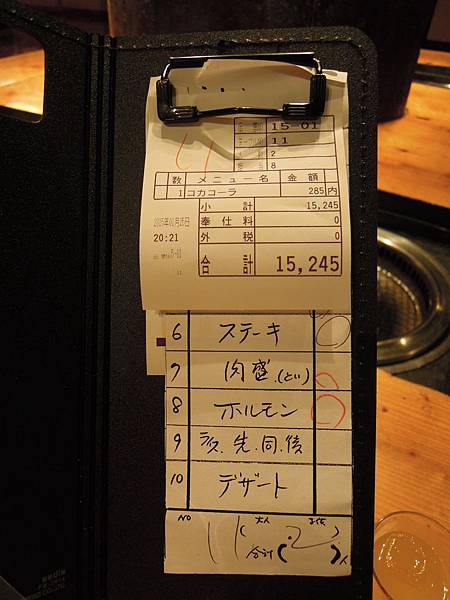 15-01
11
2
8
数 メニュー名 金額
1 コカコーラ 285内
小計 15,245
奉仕料 0
外税 0
合計 15,245
20:21
11
6 ステーキ
7 肉盛(とい)
8 ホルモン
9 ライス.先.同.後
10 デザート
NO 11 (大人 2
合計( )人